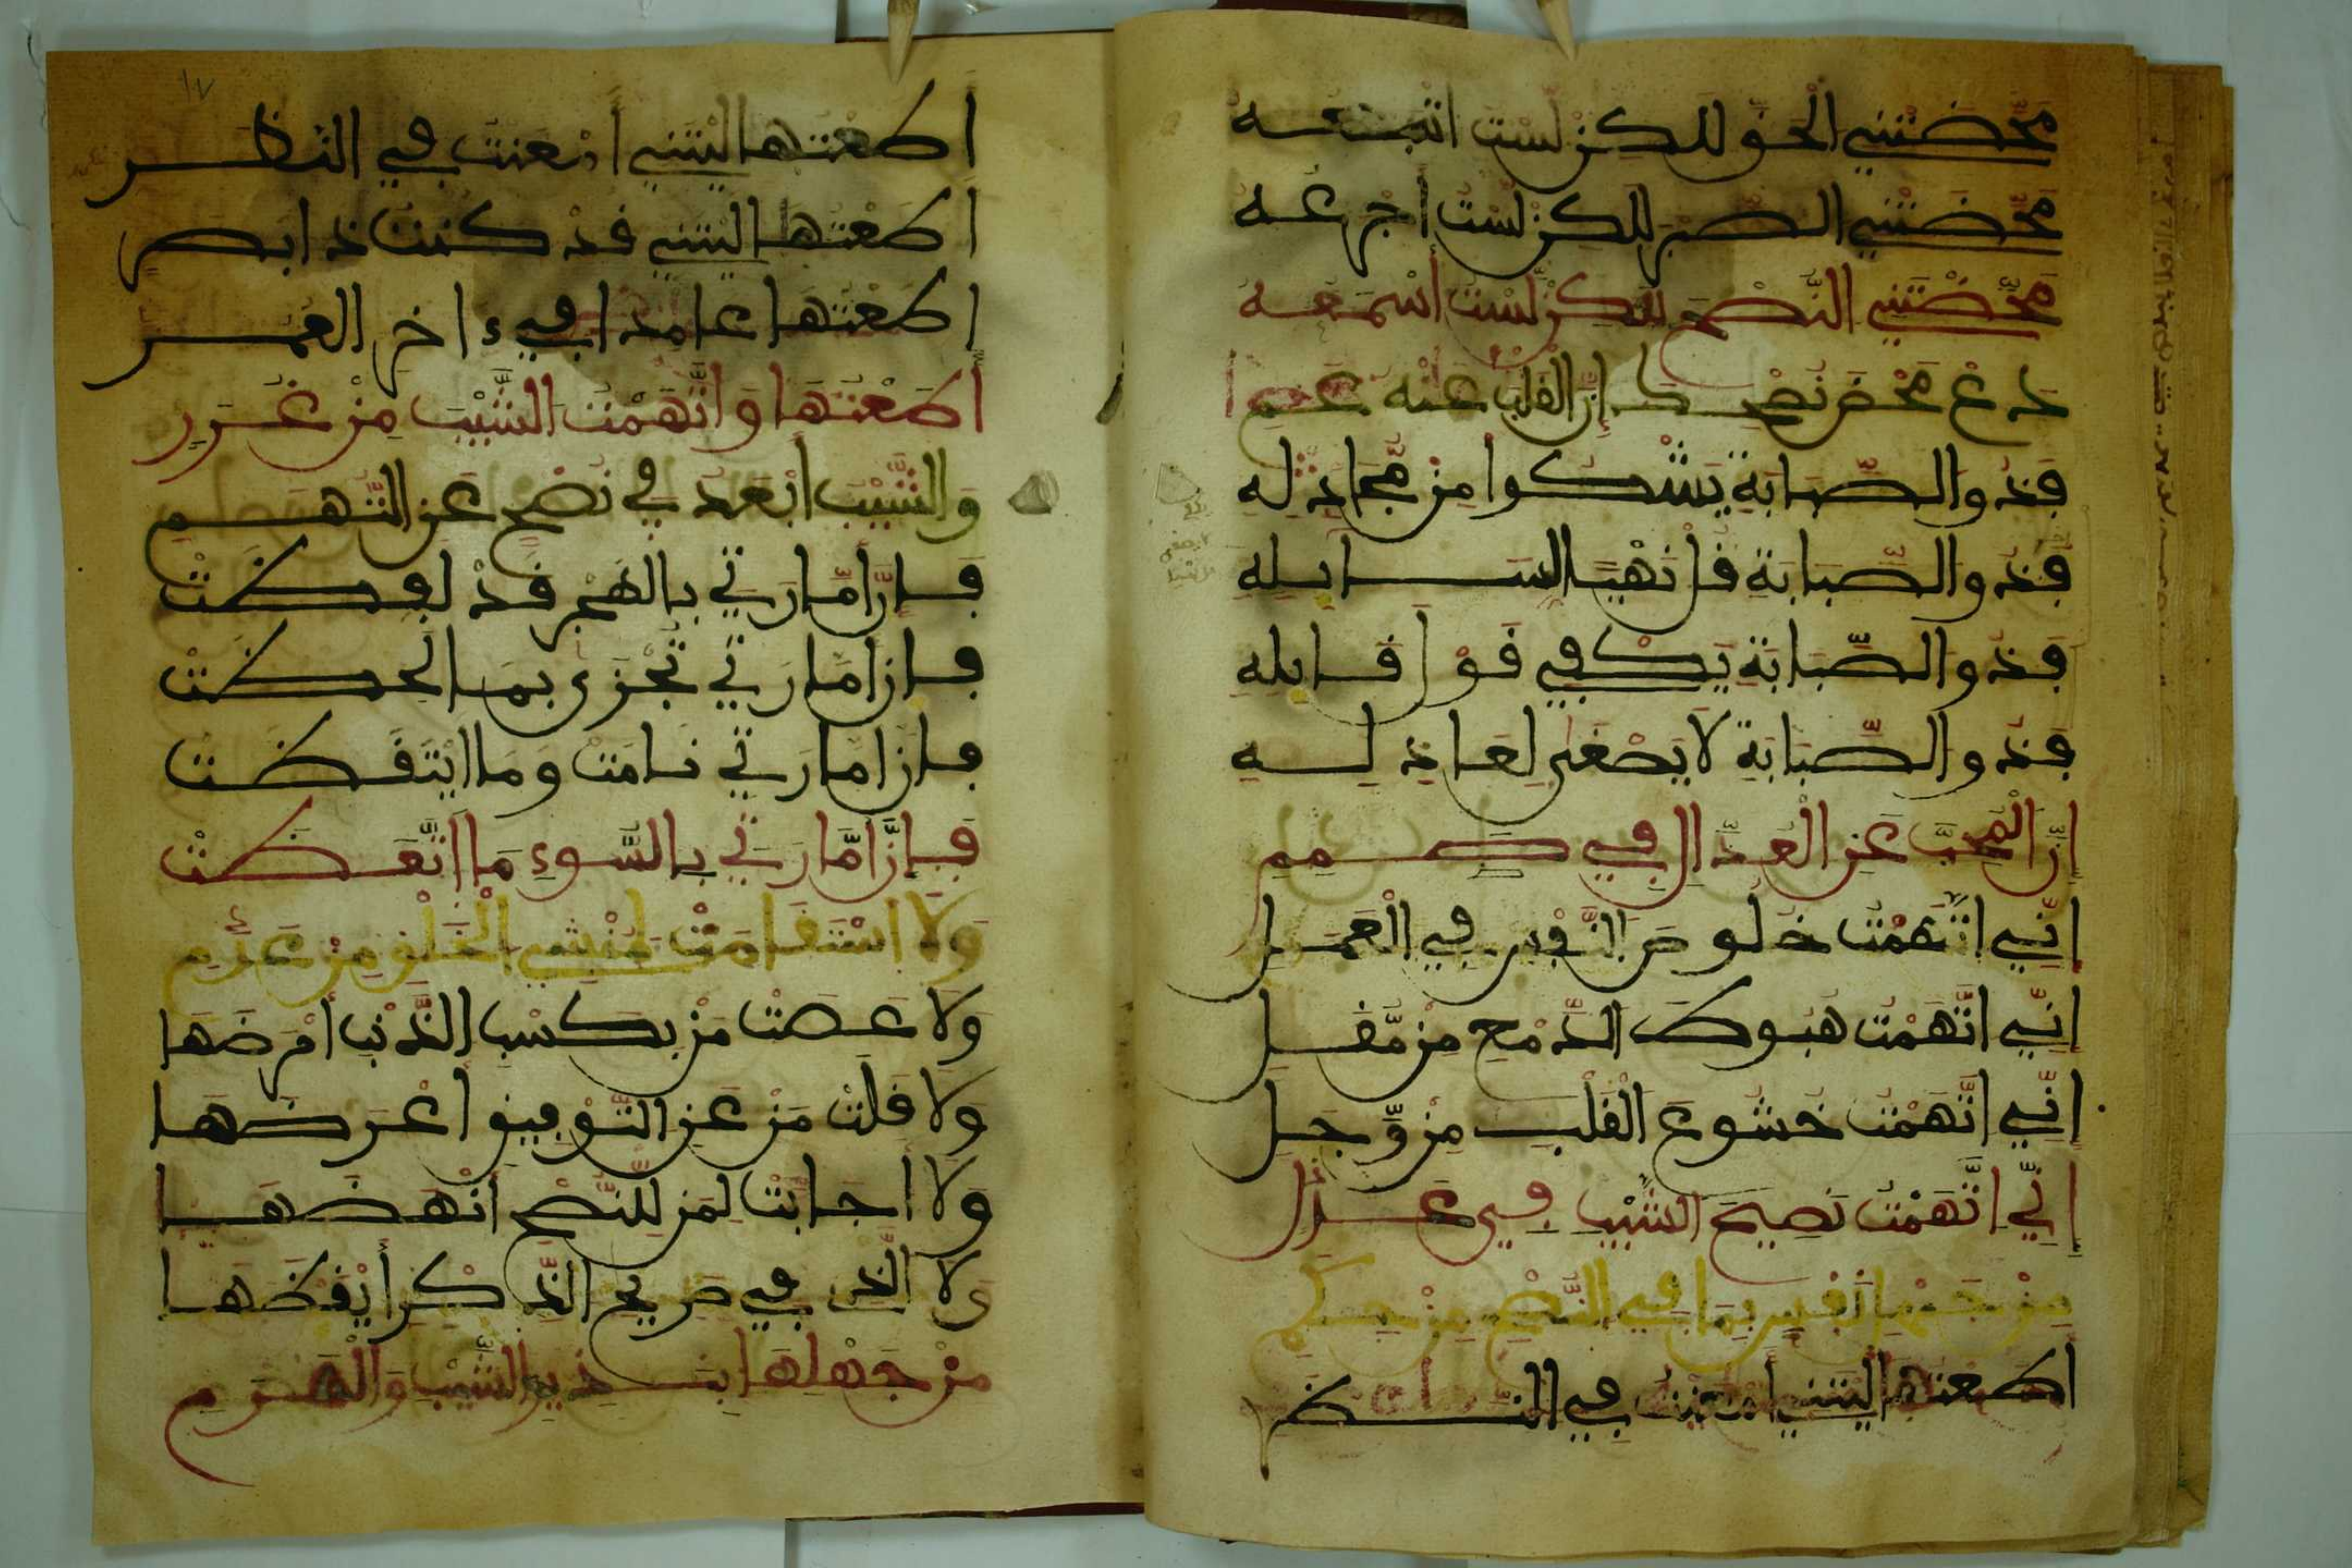 مَحَّضْتَنِي الْحَقَّ لَٰكِنْ لَسْتُ أَتْبَعُهُ
مَحَّضْتَنِي الصَّبْرَ لَٰكِنْ لَسْتُ أَجْرَعُهُ
مَحَّضْتَنِي النُّصْحَ لَٰكِنْ لَسْتُ أَسْمَعُهُ
دَعْ مَحْضَ نُصْحِكَ إِنَّ الْقَلْبَ عَنْهُ عَمِ
فَذُو الصَّبَابَةِ يَشْكُوا مِنْ مُجَادِلِهِ
فَذُو الصَّبَابَةِ فَانْهَ السَّايِلِهِ
فَذُو الصَّبَابَةِ يَكْفِي قَوْلَ قَايِلِهِ
فَذُو الصَّبَابَةِ لَا يَصْغَى لِعَاذِلِهِ
إِنَّ الْمُحِبَّ عَنِ الْعُذَّالِ فِي صَمَمِ
إِنِّي اتَّهَمْتُ خُلُوصَ النَّفْسِ فِي الْعَمَلِ
إِنِّي اتَّهَمْتُ هُبُوطَ الدَّمْعِ مِنْ مُقَلِ
إِنِّي اتَّهَمْتُ خُشُوعَ الْقَلْبِ مِنْ وَجَلِ
إِنِّي اتَّهَمْتُ نَصِيحَ الشَّيْبِ فِي عَذَلِ
مِنْ جَهْلِ نَفْسِي بِمَا فِي النُّصْحِ مِنْ حِكَمِ
أَطَعْتُهَا لَيْتَنِي أَمْعَنْتُ فِي النَّظَرِ
١٧
أَطَعْتُهَا لَيْتَنِي أَمْعَنْتُ فِي النَّظَرِ
أَطَعْتُهَا لَيْتَنِي قَدْ كُنْتُ ذَا بَصَرِ
أَطَعْتُهَا عَامِدًا فِي ءَاخِرِ الْعُمُرِ
أَطَعْتُهَا وَاتَّهَمْتُ الشَّيْبَ مِنْ غَرَرِ
وَالشَّيْبُ أَبْعَدُ فِي نُصْحٍ عَنِ التُّهَمِ
فَإِنَّ أَمَّارَتِي بِالْهَمِّ قَدْ لَفَظَتْ
فَإِنَّ أَمَّارَتِي تُجْزَى بِمَا لَحَظَتْ
فَإِنَّ أَمَّارَتِي نَامَتْ وَمَا ايْتَقَظَتْ
فَإِنَّ أَمَّارَتِي بِالسُّوءِ مَا اتَّعَظَتْ
وَلَا اسْتَقَامَتْ لِمُنْشِي الْخَلْقِ مِنْ عَدَمِ
وَلَا عَصَتْ مَنْ بِكَسْبِ الذَّنْبِ أَمْرَضَهَا
وَلَا قَلَتْ مَنْ عَنِ التَّوْفِيقِ أَعْرَضَهَا
وَلَا أَجَابَتْ لِمَنْ لِلنُّصْحِ أَنْهَضَهَا
وَلَا الَّذِي فِي صَرِيحِ الذِّكْرِ أَيْقَظَهَا
مِنْ جَهْلِهَا بِنَذِيرِ الشَّيْبِ وَالْهَرَمِ